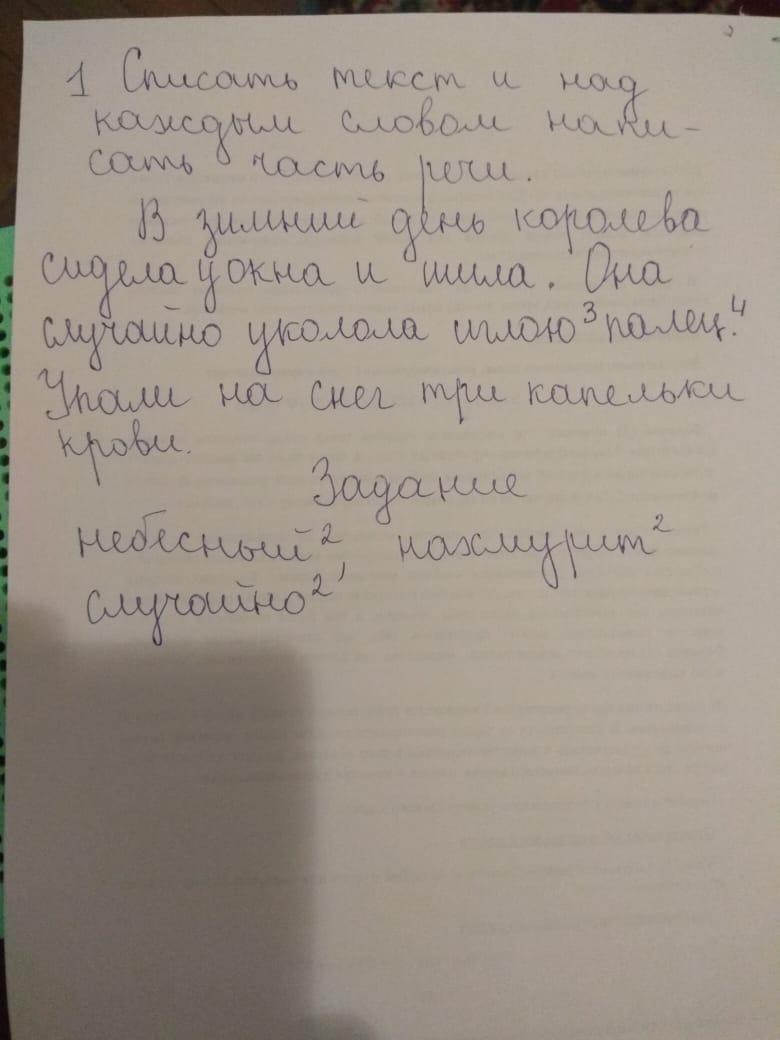 1 Списать текст и над
каждым словом напи-
сать часть речи.
В зимний день королева
сидела у окна и шила. Она
случайно уколола иглою³ палец.⁴
Упали на снег три капельки
крови.
Задание
небесный², нахмурит²
случайно²